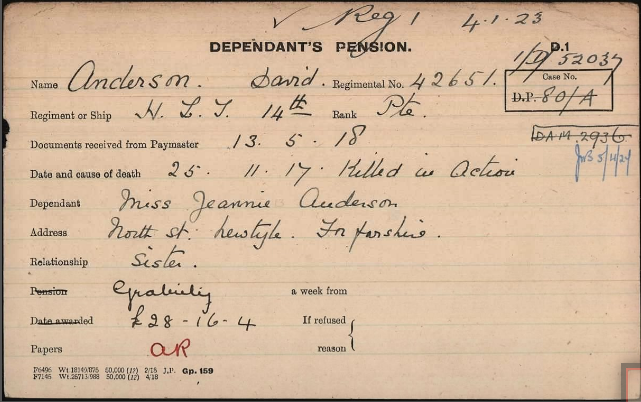 ✓ Reg 1 4.1.23
DEPENDANT'S PENSION. D.1
52037
Name Anderson. David. Regimental No. 42651. Case No.
D.P. 80/A
Regiment or Ship H. L. I. 14th Rank Pte.
Documents received from Paymaster 13. 5. 18 D.A.M. 2936
Date and cause of death 25. 11. 17. Killed in Action
Dependant Miss Jeannie Anderson
Address North St. Newtyle. Forfarshire.
Relationship Sister.
Pension Gratuity a week from
Date awarded £28-16-4 If refused
Papers AR reason
F6496 Wt.18149/875 60,000 (12) 2/18 J.P. Gp. 159
F7145 Wt.25713/988 50,000 (12) 4/18